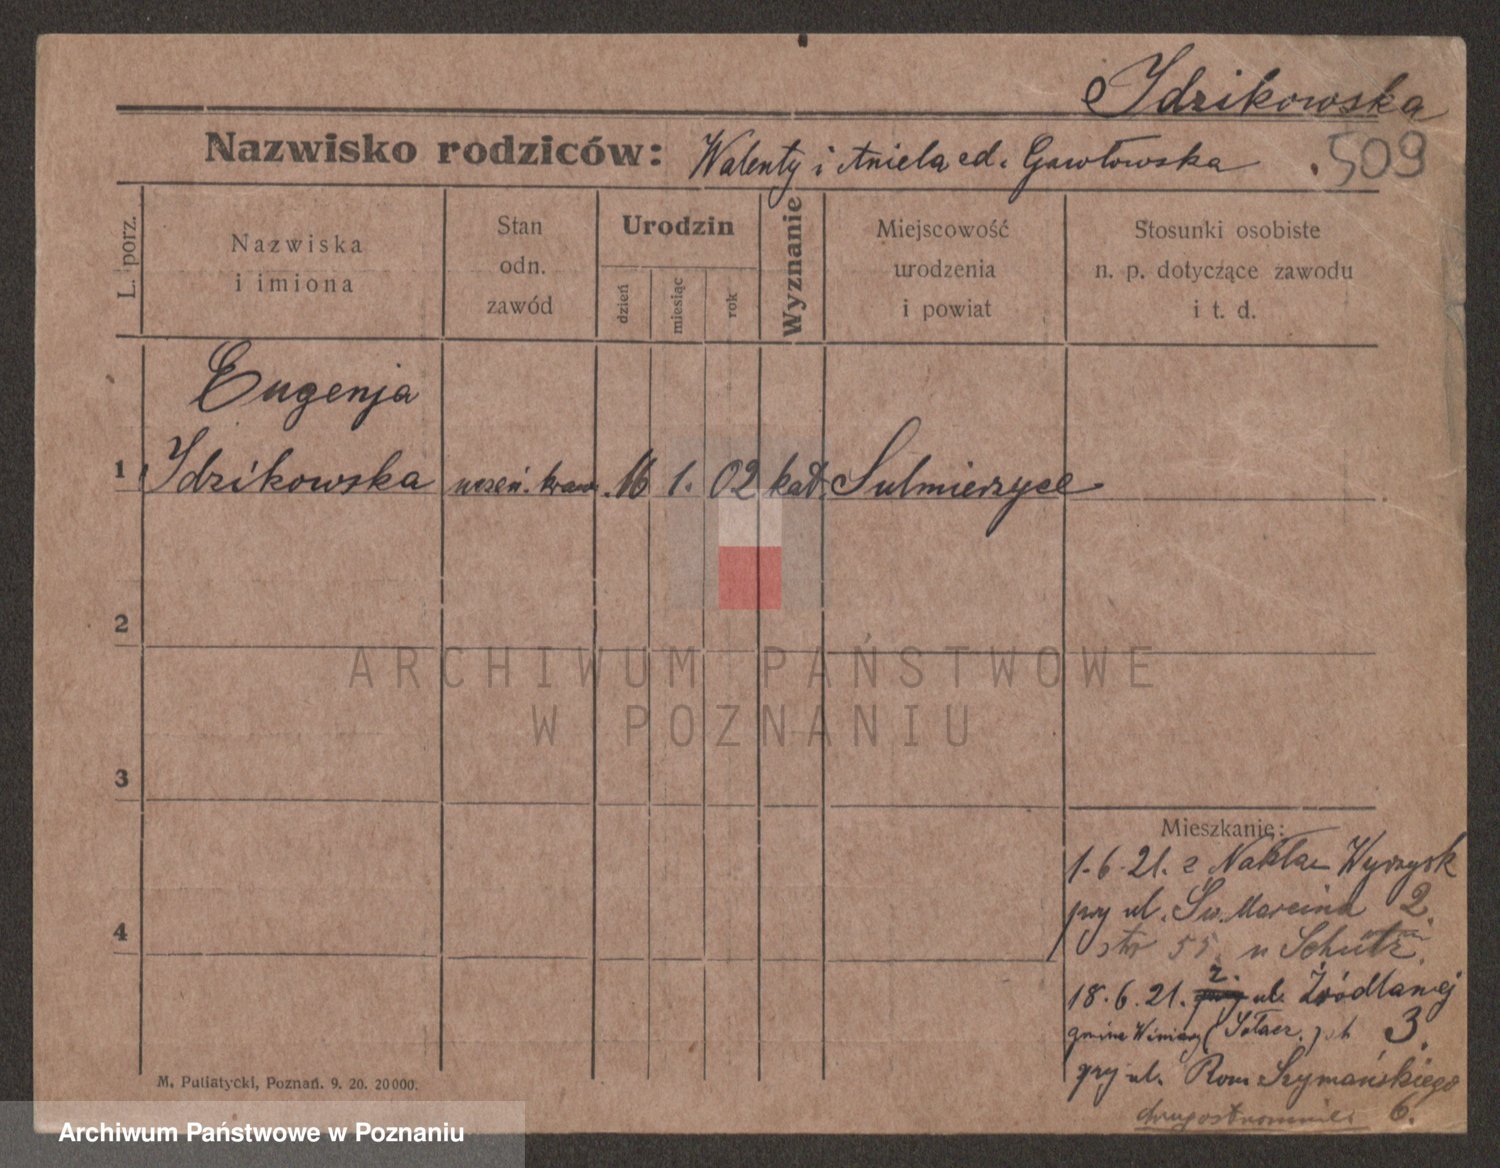 Idzikowska
Nazwisko rodziców: Walenty i Aniela ed. Gawłowska
509
L. porz.
Nazwiska
i imiona
Stan
odn.
zawód
Urodzin
dzień
miesiąc
rok
Wyznanie
Miejscowość
urodzenia
i powiat
Stosunki osobiste
n. p. dotyczące zawodu
i t. d.
Eugenja
1 Idzikowska uczen. kraw. 16 1. 02 kat. Sulmierzyce
2
3
4
Mieszkanie:
1.6.21. z Nakła Wyrzysk
przy ul. Św. Marcina 2.
55 u Schütz.
18.6.21. z. ul. Źródlanej
gmina Winiary (Sołacz.) 3.
przy ul. Rom Szymańskiego
6.
M. Putiatycki, Poznań. 9. 20. 20000.
ARCHIWUM PAŃSTWOWE
W POZNANIU
Archiwum Państwowe w Poznaniu